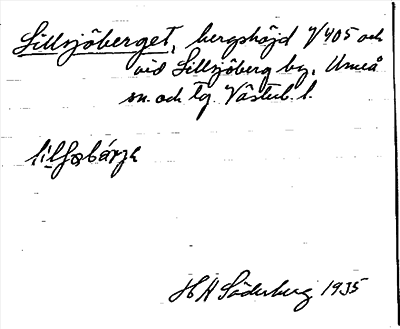 Lillsjöberget, bergshöjd V 405 och
vid Lillsjöberg by, Umeå
sn. och tg. Västerb. l.
HA Söderberg 1935